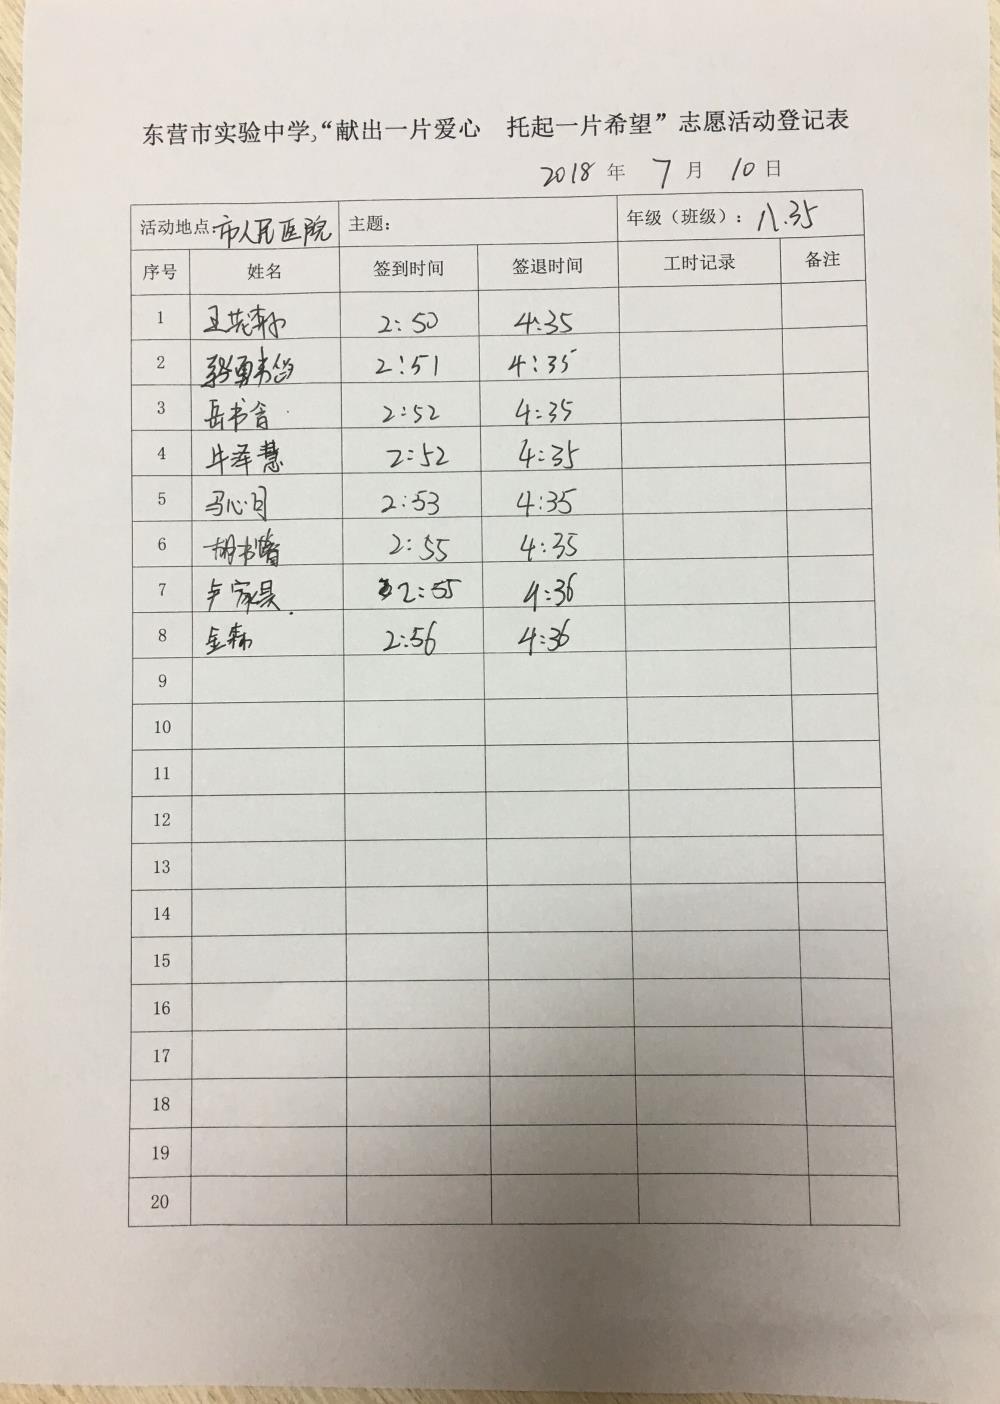 东营市实验中学,“献出一片爱心 托起一片希望”志愿活动登记表
2018 年 7 月 10 日
活动地点: 市人民医院 主题: 年级（班级）: 八.35
序号 姓名 签到时间 签退时间 工时记录 备注
1 2:50 4:35
2 2:51 4:35
3 岳书含 2:52 4:35
4 牛泽慧 2:52 4:35
5 马心月 2:53 4:35
6 2:55 4:35
7 卢家昊 2:55 4:36
8 2:56 4:36
9
10
11
12
13
14
15
16
17
18
19
20